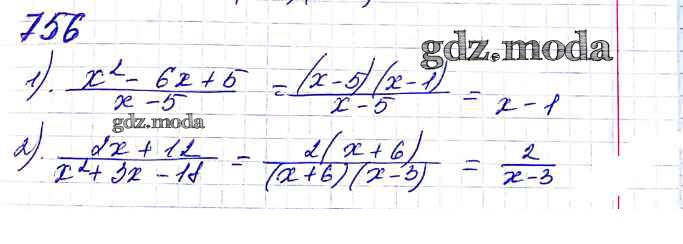 756
gdz.moda
1). (x² - 6x + 5)/(x - 5) = ((x-5)(x-1))/(x-5) = x - 1
gdz.moda
2). (2x + 12)/(x² + 3x - 18) = (2(x+6))/((x+6)(x-3)) = 2/(x-3)